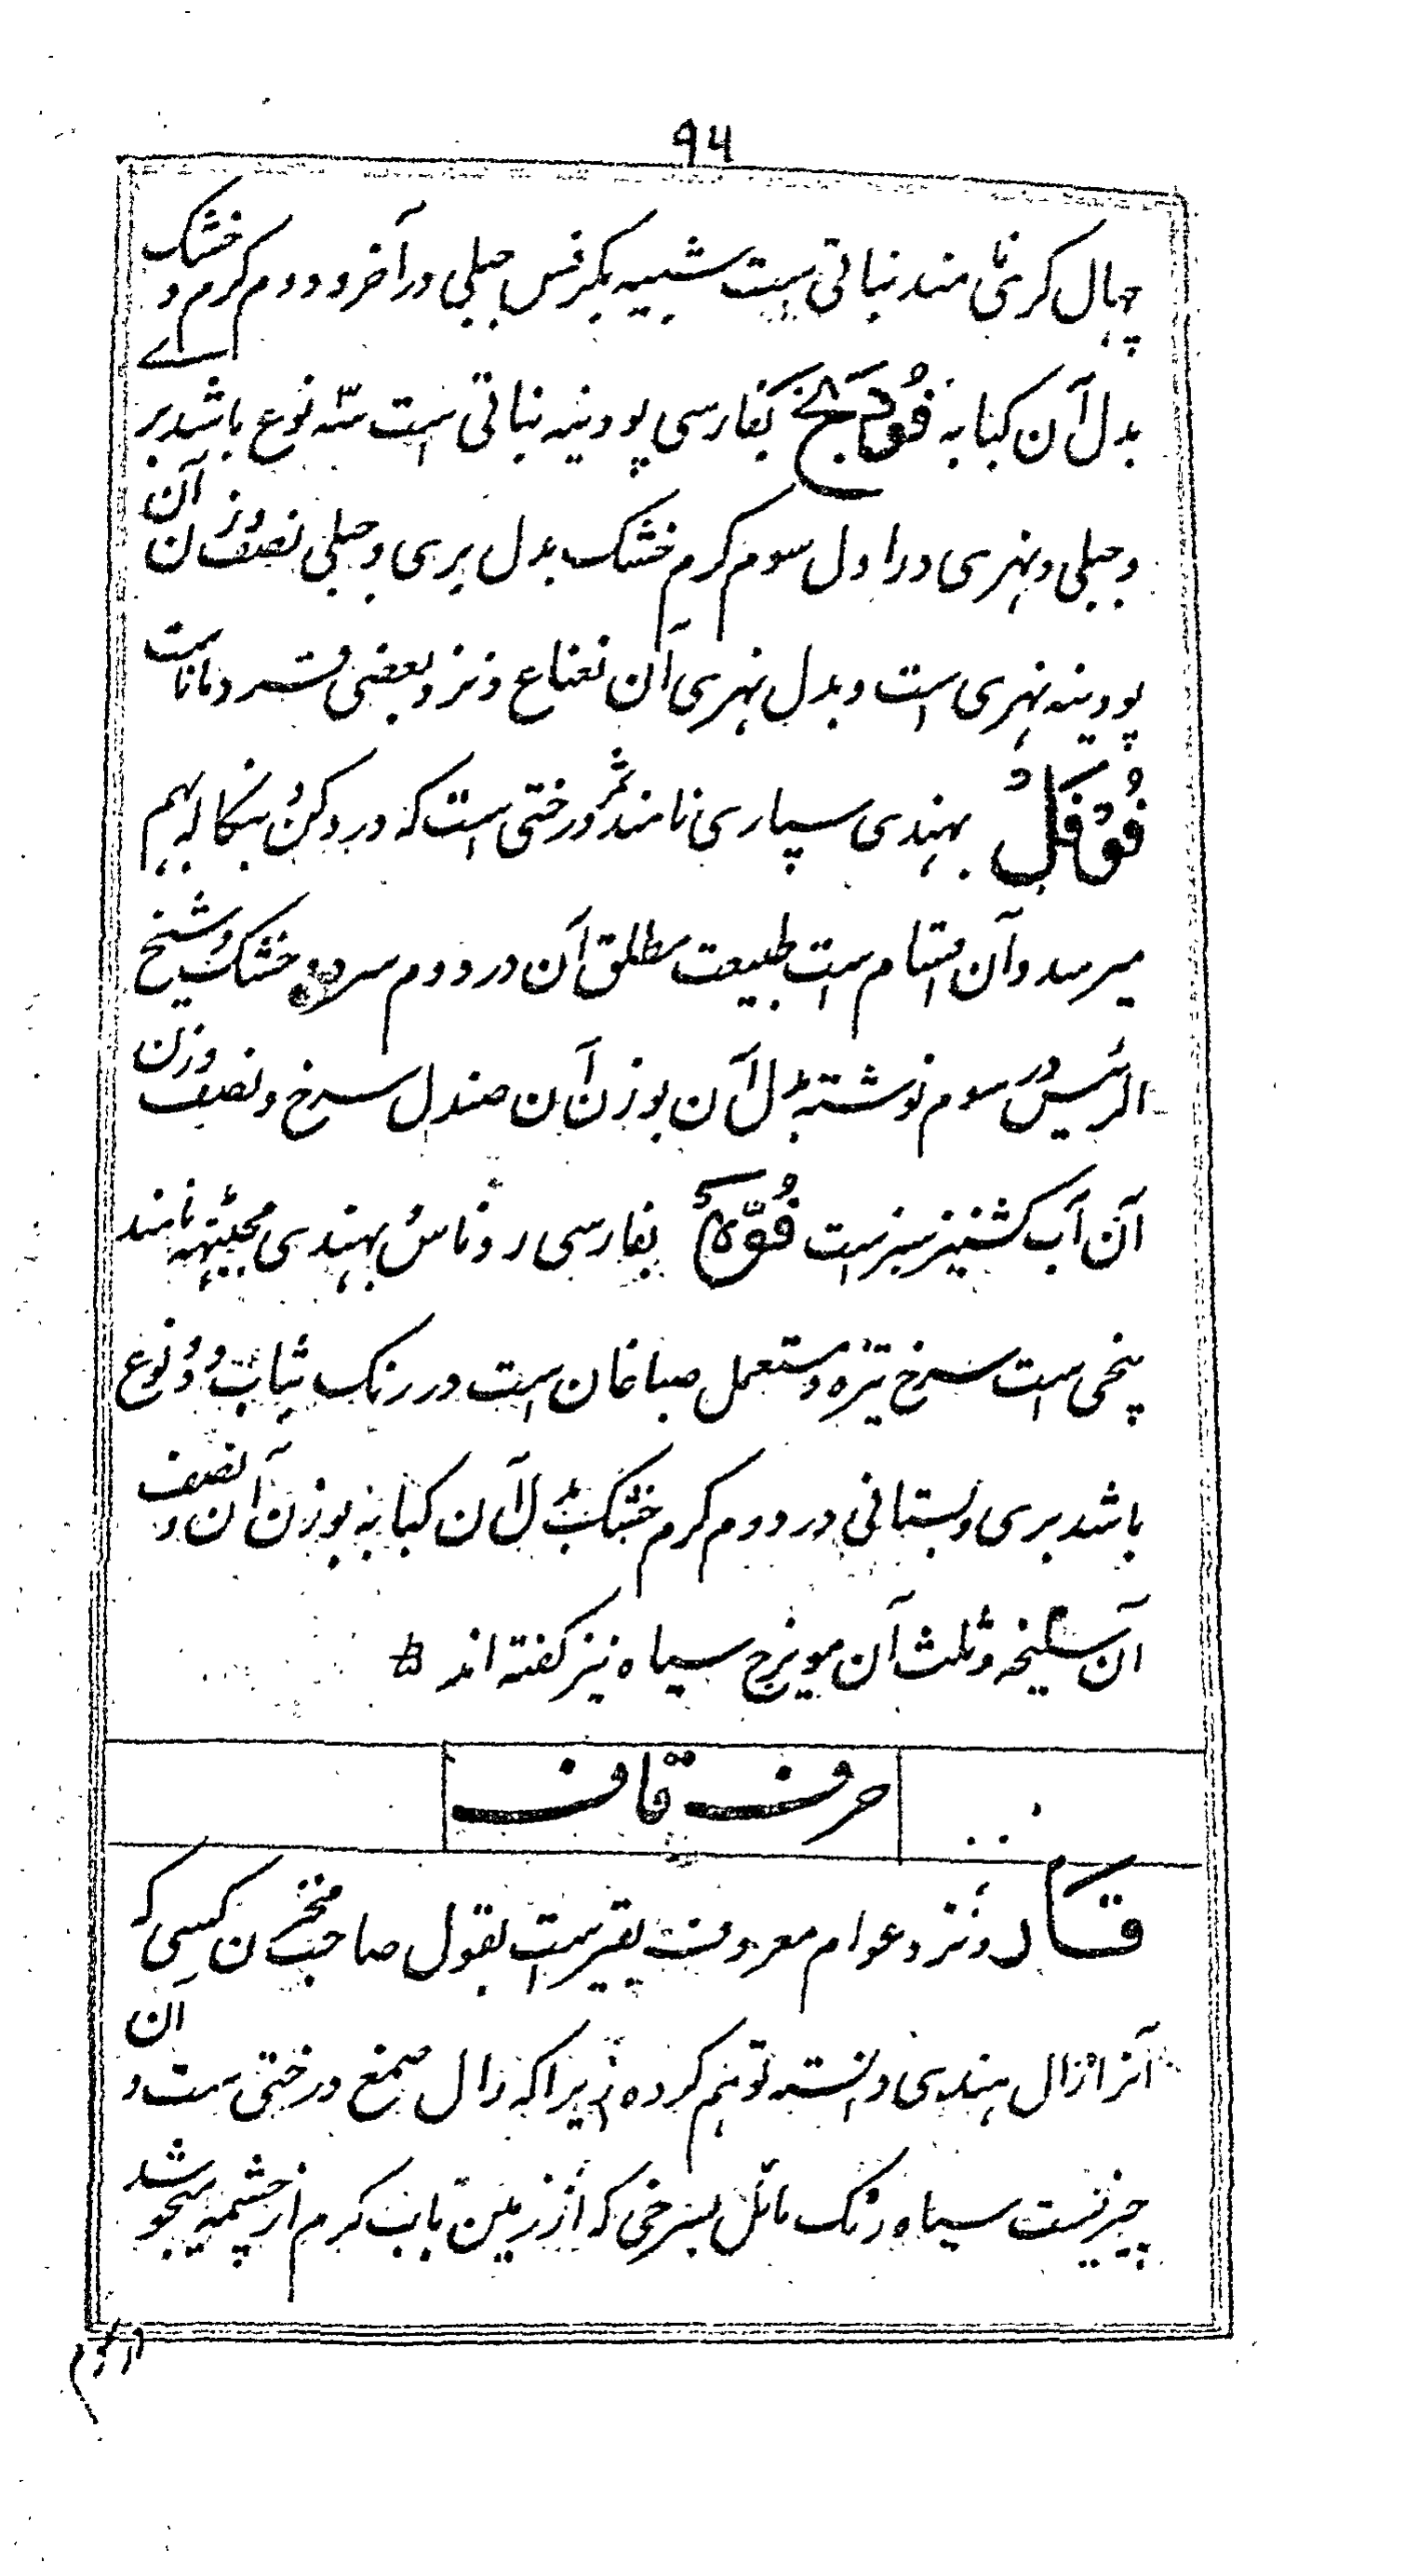 ۹۶
چهال کرئی نامند نباتی ست شبیه بکرفس جبلی در آخر دوم کرم و خشک
بدل آن کبابه فُودَنج بفارسی پودینه نباتی است سه نوع باشد بری
و جبلی و نهری در اول سوم کرم خشک بدل بری و جبلی نصف وزن آن
پودینه نهری است و بدل نهری آن نعناع و نزد بعضی قردماناست
فُوفَلْ بهندی سپاری نامند ثمر درختی است که در دکن و بنکاله بهم
میرسد و آن اقسام است طبیعت مطلق آن در دوم سرد و خشک و شیخ
الرئیس در سوم نوشته بدل آن بوزن آن صندل سرخ و نصف وزن
آن آب کشنیز سبز است فُوَّه بفارسی روناس و بهندی مجیٹهه نامند
بیخی است سرخ تیره و مستعمل صباغان است در رنک ثیاب و دو نوع
باشد بری و بستانی در دوم کرم خشک بدل آن کبابه بوزن آن و نصف
آن سلیخه و ثلث آن مویزج سیاه نیز کفته اند
حرف قاف
قار و نزد عوام معروف بقیرست بقول صاحب مخزن کسی که
آنرا زال هندی دانسته توهم کرده زیرا که رال صمغ درختی ست و آن
چیزیست سیاه رنک مائل بسرخی که از زمین باب کرم از چشمه میجوشد